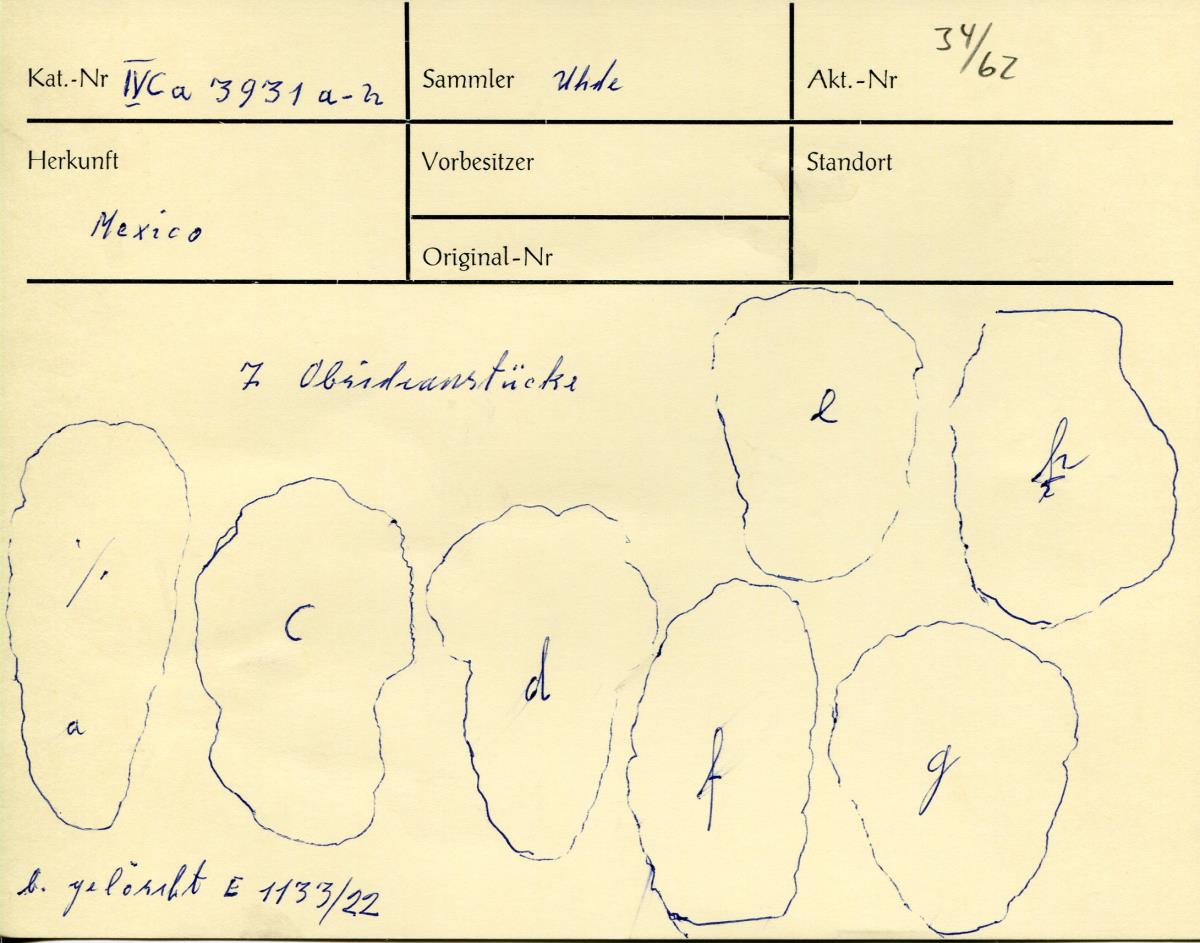 Kat.-Nr IVCa 3931 a-h
Sammler Uhde
Akt.-Nr 34/62
Herkunft
Mexico
Vorbesitzer
Original-Nr
Standort
7 Obsidianstücke
e
h
a
c
d
f
g
b. gelöscht E 1133/22